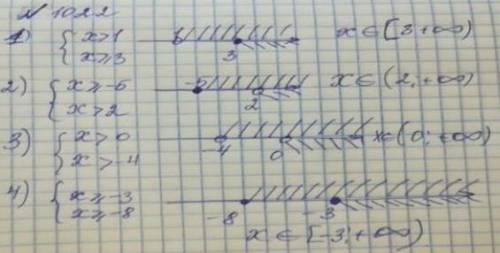 № 1022
1) { x>1 x⩾3 1 3 x∈[3 +∞)
2) { x⩾-5 x>2 -5 2 x∈(2; +∞)
3) { x>0 x>-4 -4 0 x∈(0; +∞)
4) { x⩾-3 x⩾-8 -8 -3
x∈[-3; +∞)